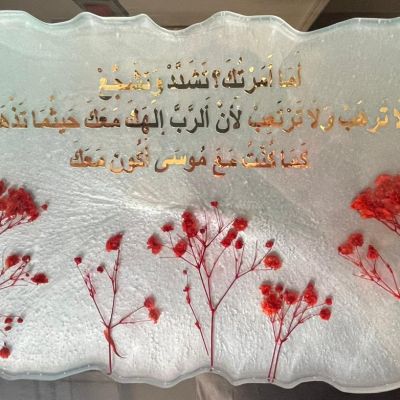 أما أمرتُكَ؟ تَشَدَّدْ وتَشَجَّعْ
لا تَرهَبْ وَلا تَرتَعِبْ لأنَّ الرَّبَّ إلهَكَ مَعَكَ حَيثُما تَذْهَ
كَما كُنْتُ مَعَ مُوسَى أكُون مَعَكَ